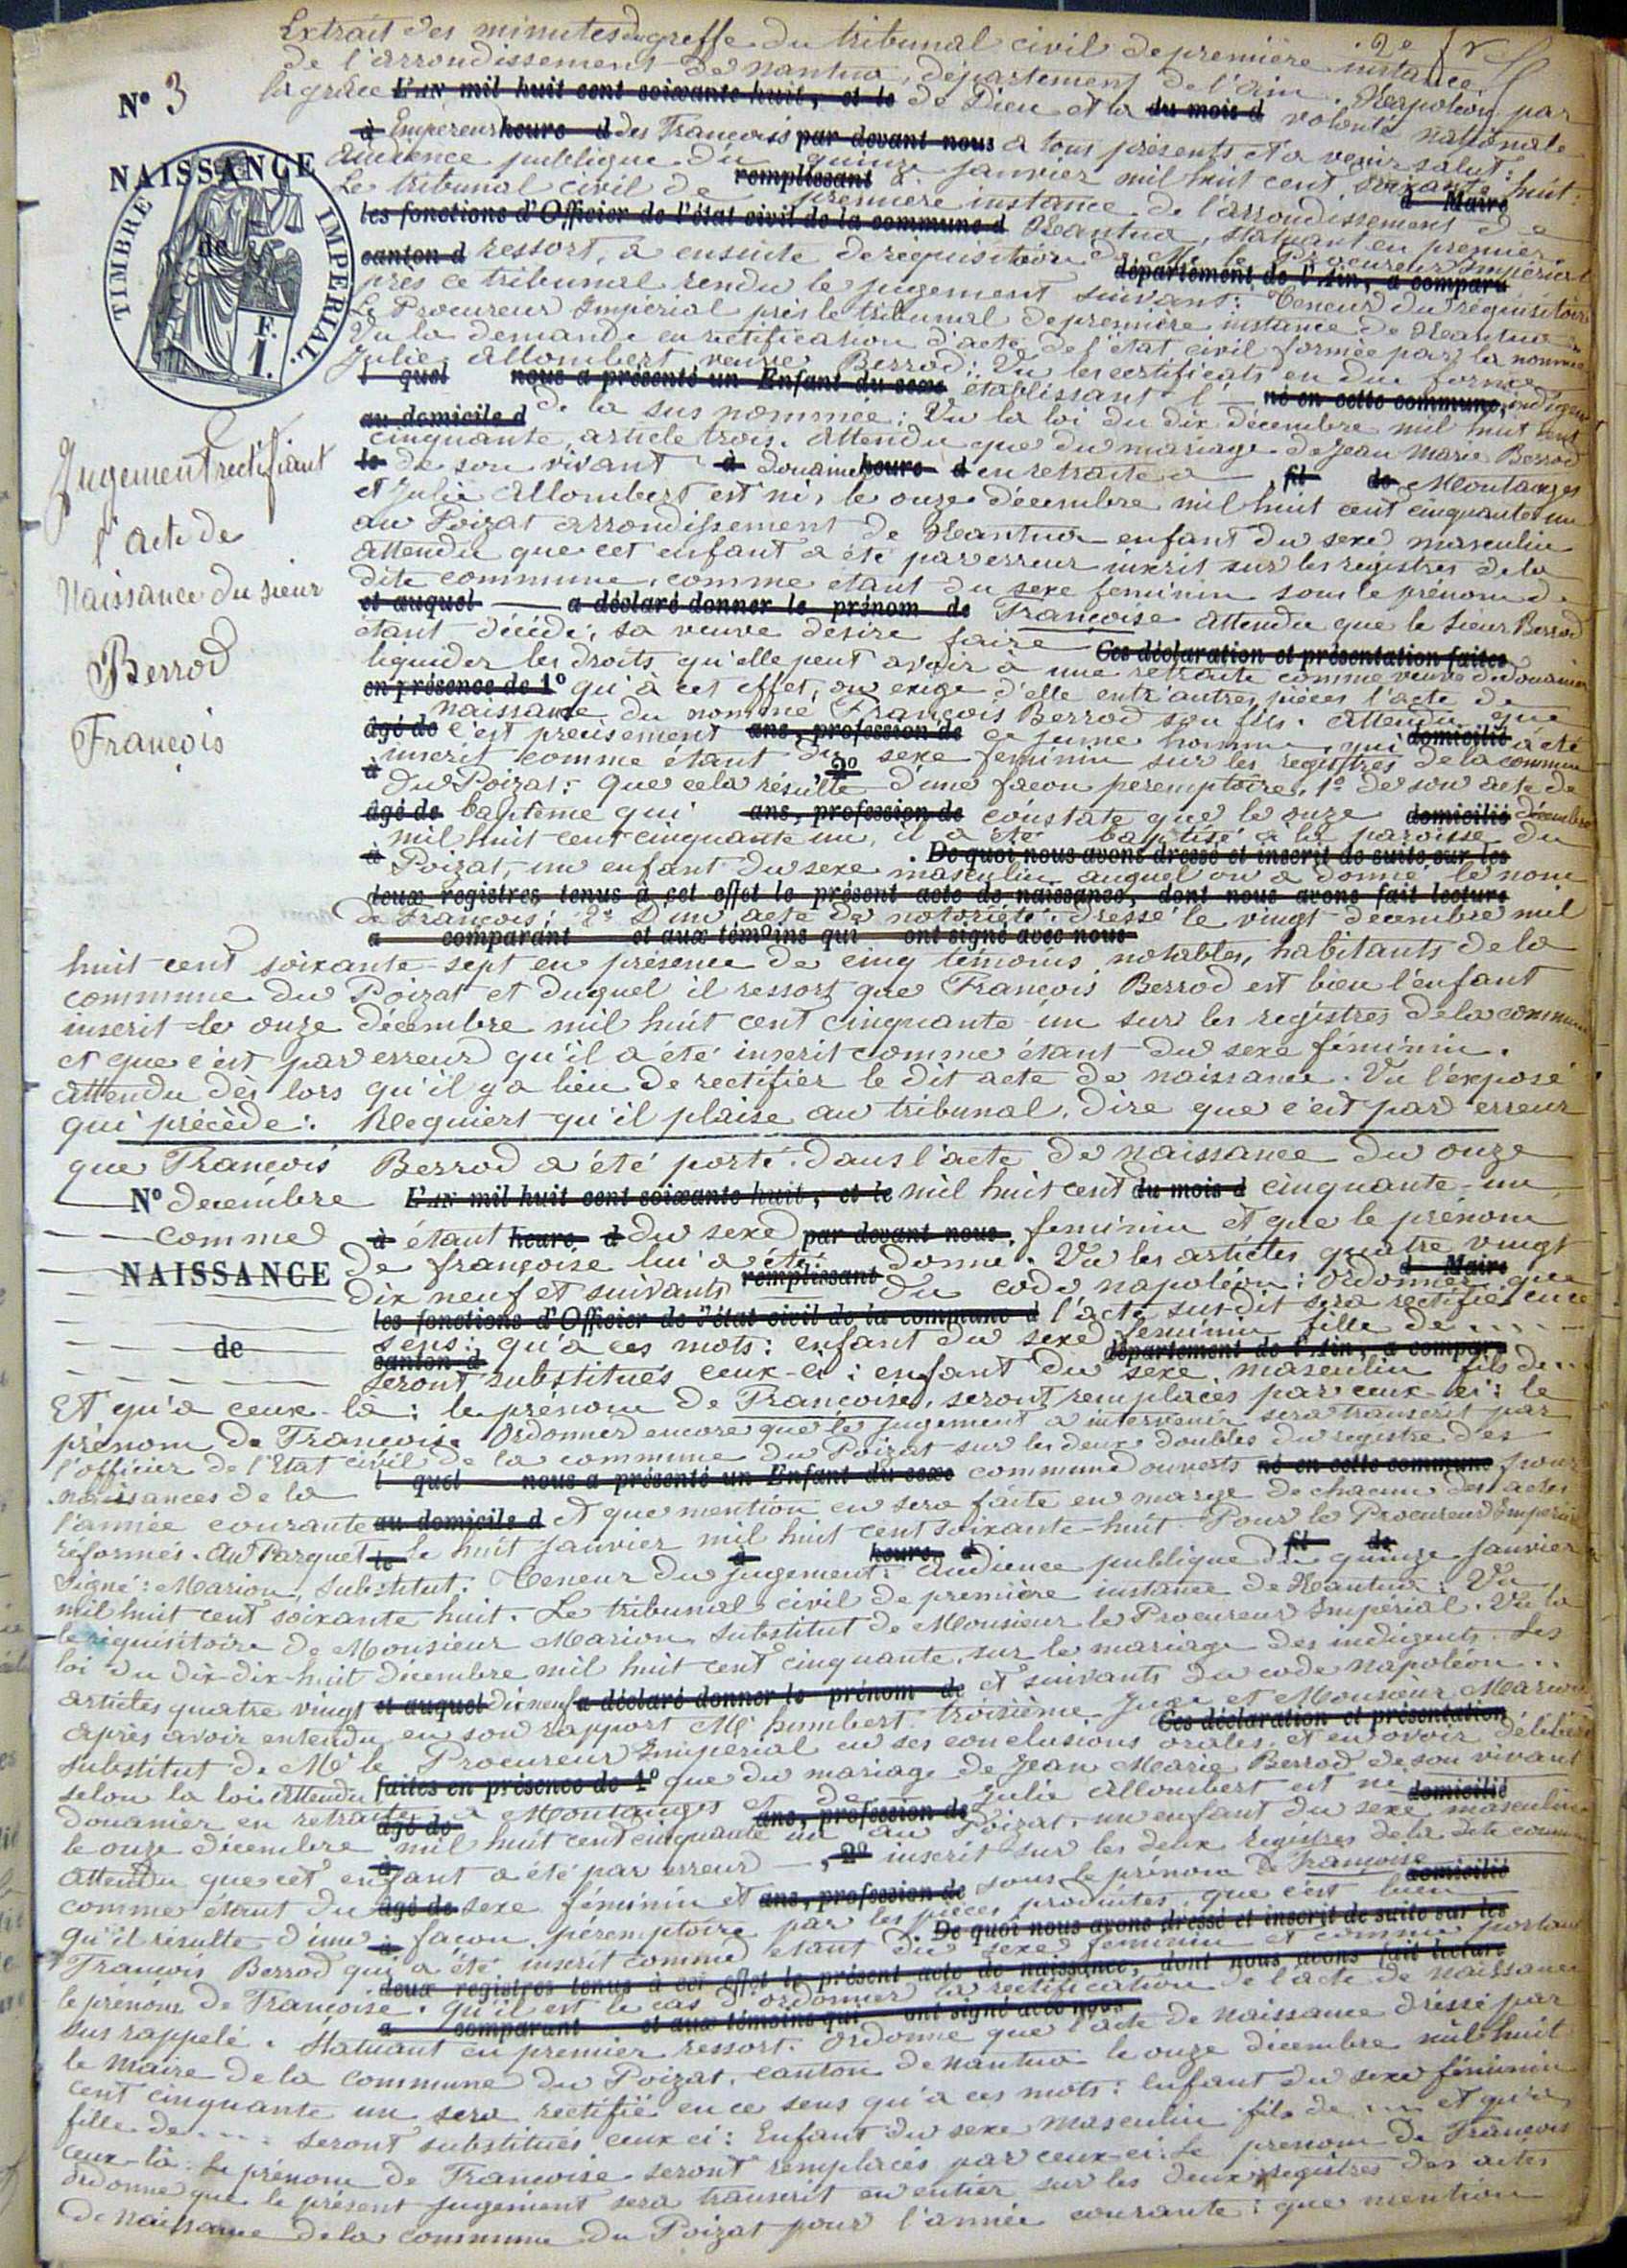 2e fr
Extrait des minutes du greffe du tribunal civil de première instance
de l'arrondissement de Nantua, département de l'ain. Napoléon par
la grâce L'AN mil huit cent soixante-huit, et le de Dieu et la du mois d volonté nationale
à Empereur heure d des Français par devant nous a tous présents et a venir salut:
audience publique du quinze janvier mil huit cent soixante huit:
remplissant d Maire
Le tribunal civil de première instance de l'arrondissement de
les fonctions d'Officier de l'état civil de la commune d Nantua, statuant en premier
canton d ressort, a ensuite de réquisitoire de Mr le Procureur Impérial
département de l'Ain, a comparu
près ce tribunal rendu le jugement suivant: Teneur du réquisitoire
Le Procureur Impérial près le tribunal de première instance de Nantua
Vu la demande en rectification d'acte de l'état civil formée par la nommée
Julie Allombert veuve Berrod: Vu les certificats en due forme
l quel nous a présenté un Enfant du sexe établissant l' né en cette commune, indigence
au domicile d de la sus nommée: Vu la loi du dix décembre mil huit cent
cinquante, article trois. Attendu que du mariage de Jean Marie Berrod
le de son vivant à douanier heure d en retraite a fil de Montanges
et Julie Allombert est né, le onze décembre mil huit cent cinquante un
au Poizat arrondissement de Nantua enfant du sexe masculin
attendu que cet enfant a été par erreur inscrit sur les registres de la
dite commune, comme étant du sexe feminin sous le prénom de
et auquel a déclaré donner le prénom de Françoise attendu que le sieur Berrod
étant décédé, sa veuve désire faire Ces déclaration et présentation faites
liquider les droits qu'elle peut avoir à une retraite comme veuve de douanier
en présence de 1º qu'à cet effet, on exige d'elle entr'autres pièces l'acte de
naissance du nommé François Berrod son fils. Attendu que
âgé de c'est précisément ans, profession de ce jeune homme, qui domicilié a été
inscrit comme étant du sexe feminin sur les registres de la commune
à , 2º
du Poizat: que cela résulte d'une façon peremptoire, 1º de son acte de
âgé de baptême qui ans, profession de constate que le onze domicilié décembre
mil huit cent cinquante un, il a été baptisé à la paroisse du
à . De quoi nous avons dressé et inscrit de suite sur les
Poizat, un enfant du sexe masculin auquel on a donné le nom
deux registres tenus à cet effet le présent acte de naissance, dont nous avons fait lecture
de François; 2º D'un acte de notoriété dressé le vingt décembre mil
a comparant et aux témoins qui ont signé avec nous
huit cent soixante-sept en présence de cinq témoins notables, habitants de la
commune du Poizat et duquel il ressort que François Berrod est bien l'enfant
inscrit le onze décembre mil huit cent cinquante-un sur les registres de la commune
et que c'est par erreur qu'il a été inscrit comme étant du sexe féminin.
attendu dès lors qu'il y a lieu de rectifier le dit acte de naissance. Vu l'exposé
qui précède: Requiert qu'il plaise au tribunal, dire que c'est par erreur
que François Berrod a été porté dans l'acte de naissance du onze
Nº décembre L'AN mil huit cent soixante-huit, et le mil huit cent du mois d cinquante-un
comme à étant heure d du sexe par devant nous, feminin et que le prénom
de françoise lui a été donné. Vu les articles quatre vingt
NAISSANCE remplissant d Maire
dix neuf et suivants du code napoléon: Ordonner que
les fonctions d'Officier de l'état civil de la commune d l'acte sus-dit sera rectifié en ce
de sens: qu'à ces mots: enfant du sexe feminin fille de ....
canton d département de l'Ain, a comparu
seront substitués ceux-ci: enfant du sexe masculin fils de...
Et qu'à ceux-là: le prénom de Françoise, seront remplacés par ceux-ci: le
prénom de François. Ordonner encore que le jugement a intervenir sera transcrit par
l'officier de l'Etat civil de la commune du Poizat sur les deux doubles du registre des
naissances de la l quel nous a présenté un Enfant du sexe commune ouverts né en cette commune pour
l'année courante au domicile d et que mention en sera faite en marge de chacun des actes
réformés. Au Parquet le le huit janvier mil huit cent soixante-huit Pour le Procureur Impérial
à heure d fil de
Signé: Marion, Substitut. Teneur du jugement: Audience publique du quinze janvier
mil huit cent soixante huit. Le tribunal civil de première instance de Nantua: Vu
le réquisitoire de Monsieur Marion Substitut de Monsieur le Procureur Impérial. Vu la
loi du dix-dix-huit décembre mil huit cent cinquante, sur le mariage des indigents. Les
articles quatre vingt et auquel dix neuf a déclaré donner le prénom de et suivants du code Napoléon..
après avoir entendu en son rapport Mr humbert troisième Juge et Monsieur Marion
Ces déclaration et présentation
substitut de Mr le Procureur Impérial en ses conclusions orales et en avoir délibéré
selon la loi Attendu faites en présence de 1º que du mariage de Jean Marie Berrod de son vivant
douanier en retraite a Montanges et de Julie Allombert est né domicilié
âgé de ans, profession de
le onze décembre mil huit cent cinquante un au Poizat, un enfant du sexe masculin
Attendu que cet enfant a été par erreur , 2º inscrit sur les deux registres de la dite commune
comme étant du âgé de sexe féminin et ans, profession de sous le prénom de Françoise domicilié
qu'il résulte d'une à façon péremptoire par les pièces produites, que c'est bien
De quoi nous avons dressé et inscrit de suite sur les
François Berrod qui a été inscrit comme étant du sexe feminin et comme portant
deux registres tenus à cet effet le présent acte de naissance, dont nous avons fait lecture
le prénom de Françoise. qu'il est le cas d'ordonner la rectification de l'acte de naissance
a comparant et aux témoins qui ont signé avec nous
sus rappelé. Statuant en premier ressort. Ordonne que l'acte de naissance dressé par
le Maire de la commune du Poizat, canton de Nantua le onze décembre mil huit
cent cinquante un sera rectifié en ce sens qu'a ces mots: Enfant du sexe féminin
fille de.... seront substitués ceux ci: Enfant du sexe masculin fils de .... et qu'à
ceux-là: le prénom de Françoise seront remplacés par ceux-ci: Le prénom de François
ordonne que le présent jugement sera transcrit en entier sur les deux registres des actes
de naissance de la commune du Poizat pour l'année courante: que mention
Nº 3
NAISSANCE
de
TIMBRE IMPERIAL.
F.
1.
Jugement rectifiant
l'acte de
Naissance du sieur
Berrod
François